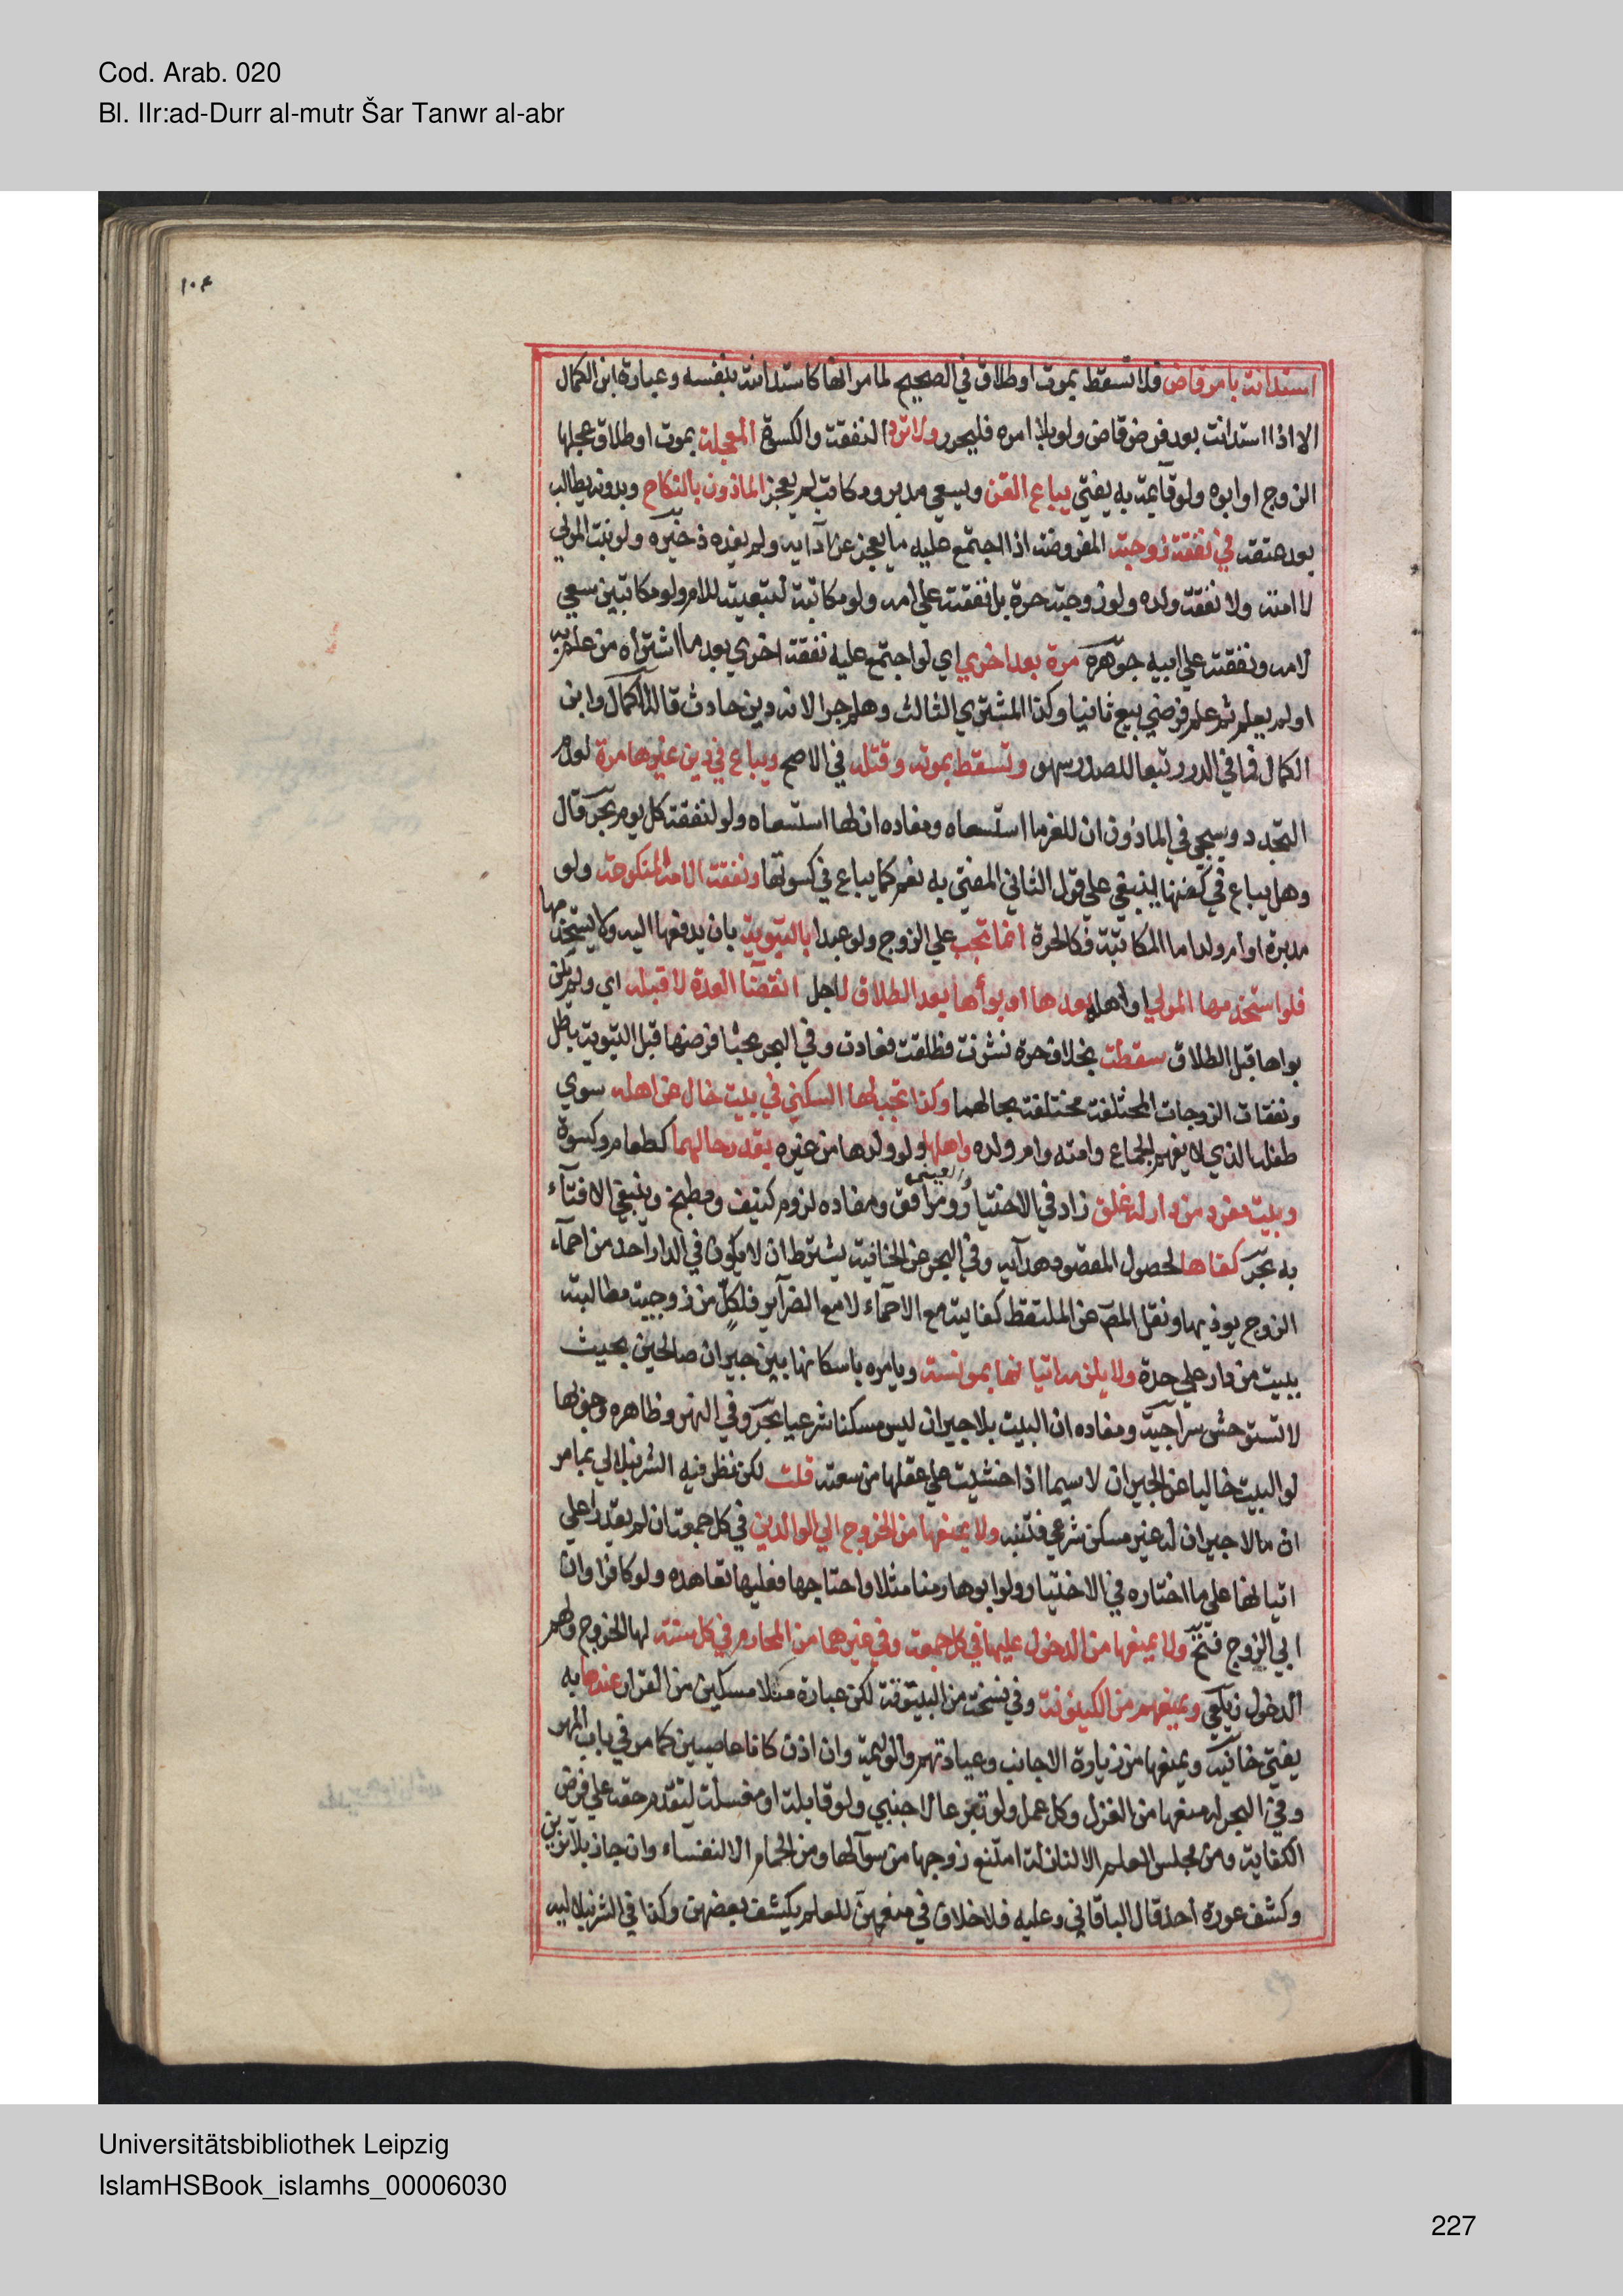 Cod. Arab. 020
Bl. IIr:ad-Durr al-mutr Šar Tanwr al-abr
١٠٤
استدانت بامر قاض فلا تسقط بموت او طلاق في الصحيح لما مر انها كاستدانته بنفسه وعبارة ابن الكمال
الا اذا استدانت بعد فرض قاض ولو بلا امره فليحرر ولا ترد النفقة والكسوة المعجلة بموت او طلاق عجلها
الزوج او ابوه ولو قايمة به يفتي يباع القن ويسعي مدبر ومكاتب لم يعجز الماذون بالنكاح وبدونه يطالب
بعد عتقه في نفقة زوجته المفروضة اذا اجتمع عليه ما يعجز عن ادايه ولم يفده ذخيره ولو بنت المولي
لا امته ولا نفقة ولده ولو زوجته حرة بل نفقته علي امه ولو مكاتبة لتبعيته للام ولو مكاتبين سعي
لامه ونفقته علي ابيه جوهره مرة بعد اخري اي لو اجتمع عليه نفقة اخري بعد ما اشتراه من علم به
او لم يعلم ثم علم فرضي بيع ثانيا وكذا المشتري الثالث وهلم جرا لانه دين حادث قاله الكمال وابن
الكمال فما في الدرر تبعا للصدر سهو وتسقط بموته وقتله في الاصح ويباع في دين غيرها مرة لعدم
التجدد وسيجي في الماذون ان للغرما استسعاه ومفاده ان لها استسعاه ولو لنفقة كل يوم بحر قال
وهل يباع في كفنها ينبغي علي قول الثاني المفتي به نعم كما يباع في كسوتها ونفقة الامة المنكوحة ولو
مدبرة او ام ولد اما المكاتبة فكالحرة انما تجب علي الزوج ولو عبدا بالتبوية بان يدفعها اليه ولا يستخدمها
فلو استخدمها المولي او اهله بعدها او بوأها بعد الطلاق لاجل انقضآ العدة لا قبله اي ولم يكن
بواها قبل الطلاق سقطت بخلاف حرة نشزت فطلقت فعادت وفي البحر بحثا فرضها قبل التبوية باطل
ونفقات الزوجات المختلفة مختلفة بحالهما وكذا تجب لها السكني في بيت خال عن اهله سوي
طفله الذي لا يفهم الجماع وامته وام ولده واهلها ولو ولدها من غيره بقدر حالهما كطعام وكسوة
وبيت مفرد من دار له غلق زاد في الاختيار ومرافق ومفاده لزوم كنيف ومطبخ وينبغي الافتآء
به بحر كفاها لحصول المقصود هدآيه وفي البحر عن الخانية يشترط ان لا يكون في الدار احد من احمآء
الزوج يوذيها ونقل المص عن الملتقط كفايته مع الاحمآء لا مع الضرآير فلكل من زوجيته مطالبته
ببيت من دار علي حدة ولا يلزمه اتيانها بمونسة ويامره باسكانها بين جيران صالحين بحيث
لا تستوحش سراجية ومفاده ان البيت بلا جيران ليس مسكنا شرعيا بحر وفي النهر وظاهره وجوبها
لو البيت خاليا عن الجيران لاسيما اذا خشيت علي عقلها من سعته قلت لكن نظر فيه الشرنبلالي بما مر
ان ما لا جيران له غير مسكن شرعي فتنبه ولا يمنعها من الخروج الي الوالدين في كل جمعة ان لم يقدرا علي
اتيانها علي ما اختاره في الاختيار ولو ابوها زمنا مثلا واحتاجها فعليها تعاهده ولو كافرا وان
ابي الزوج فتح ولا يمنعهما من الدخول عليها في كل جمعة وفي غيرهما من المحارم في كل سنة لها الخروج ولهم
الدخول زيلعي ويمنعهم من الكينونة وفي نسخة من البيتوتة لكن عبارة منلا مسكين من القرار عندها به
يفتي خانية ويمنعها من زيارة الاجانب وعيادتهم والوليمة وان اذن كانا عاصيين كما مر في باب المهر
وفي البحر له منعها من الغزل وكل عمل ولو تبرعا لاجنبي ولو قابلة او مغسلة لتقدم حقه علي فرض
الكفاية ومن مجلس العلم الا لنازلة امتنع زوجها من سوآلها ومن الحمام الا النفسآء وان جاز بلا تزين
وكشف عورة احد قال الباقاني وعليه فلا خلاف في منعهن للعلم بكشف بعضهن وكذا في الشرنبلالية
Universitätsbibliothek Leipzig
IslamHSBook_islamhs_00006030
227